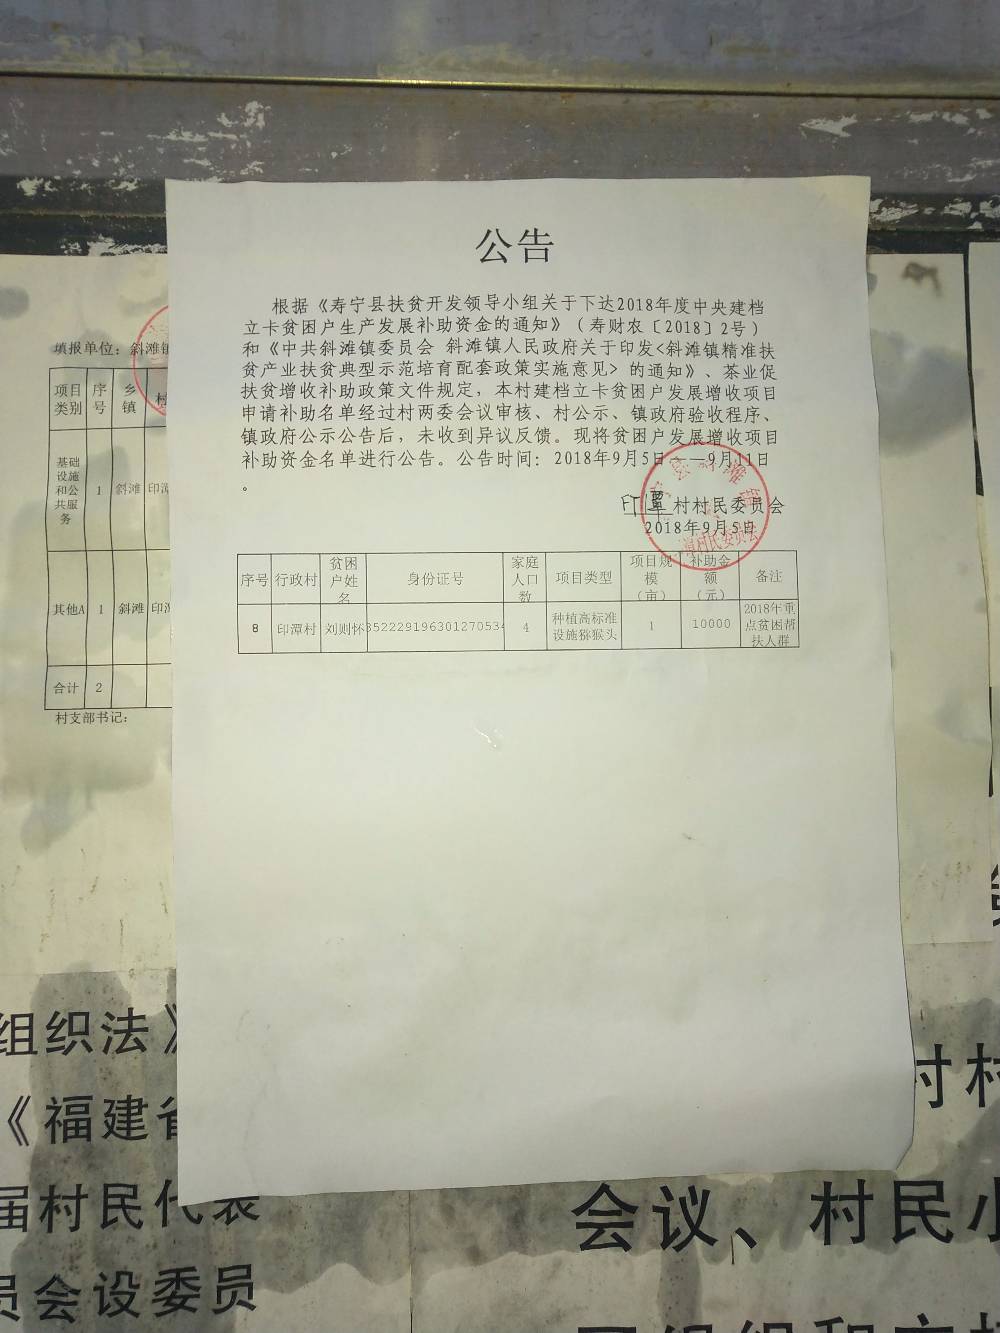 公告
根据《寿宁县扶贫开发领导小组关于下达2018年度中央建档
立卡贫困户生产发展补助资金的通知》（寿财农〔2018〕2号）
和《中共斜滩镇委员会 斜滩镇人民政府关于印发<斜滩镇精准扶
贫产业扶贫典型示范培育配套政策实施意见> 的通知》、茶业促
扶贫增收补助政策文件规定，本村建档立卡贫困户发展增收项目
申请补助名单经过村两委会议审核、村公示、镇政府验收程序、
镇政府公示公告后，未收到异议反馈。现将贫困户发展增收项目
补助资金名单进行公告。公告时间：2018年9月5日——9月11日
。
印潭村村民委员会
2018年9月5日
序号 行政村 贫困户姓名 身份证号 家庭人口数 项目类型 项目规模（亩） 补助金额（元） 备注
8 印潭村 刘则怀 352229196301270534 4 种植高标准设施猕猴头 1 10000 2018年重点贫困帮扶人群
填报单位：斜滩镇
项目类别 序号 乡镇 村
基础设施和公共服务 1 斜滩 印潭
其他A 1 斜滩 印潭
合计 2
村支部书记：
组织法》
《福建省
届村民代表
员会设委员
村村
会议、村民小